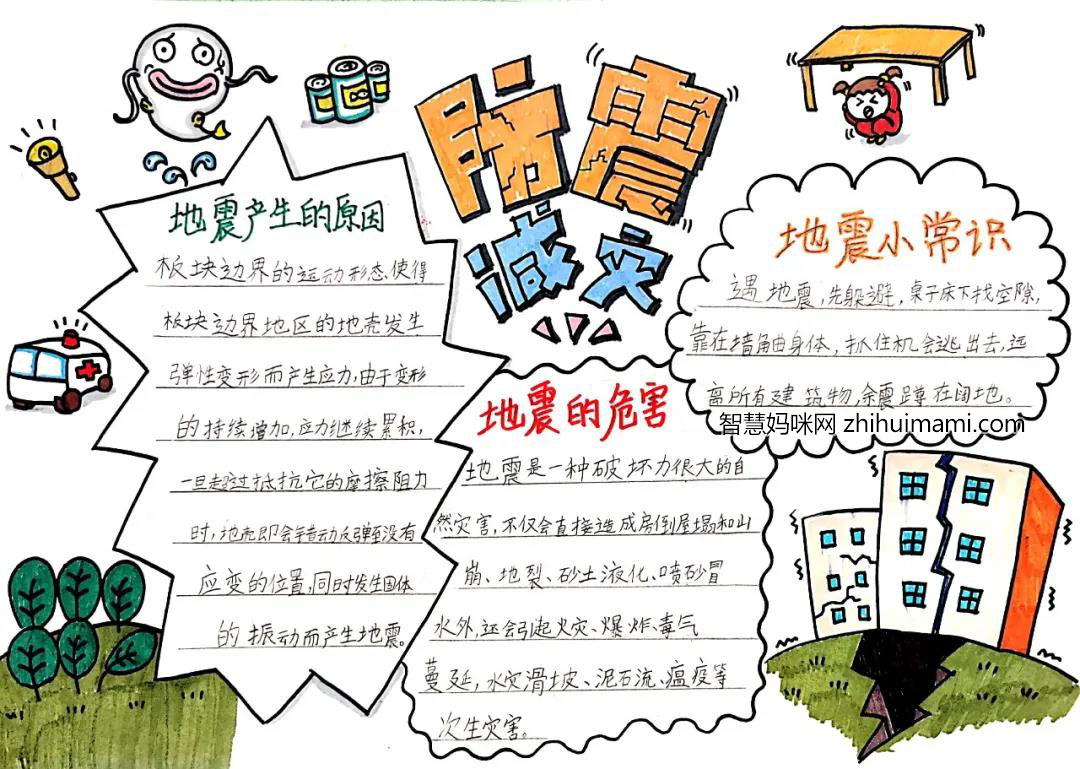 防震
减灾
地震产生的原因
板块边界的运动形态,使得
板块边界地区的地壳发生
弹性变形而产生应力,由于变形
的持续增加,应力继续累积,
一旦超过抵抗它的摩擦阻力
时,地壳即会错动反弹至没有
应变的位置,同时发生固体
的振动而产生地震。
地震的危害
地震是一种破坏力很大的自
然灾害,不仅会直接造成房倒屋塌和山
崩、地裂、砂土液化、喷砂冒
水外,还会引起火灾、爆炸、毒气
蔓延,水灾滑坡、泥石流、瘟疫等
次生灾害。
地震小常识
遇地震,先躲避,桌子床下找空隙,
靠在墙角曲身体,抓住机会逃出去,远
离所有建筑物,余震蹲在闭地。
智慧妈咪网 zhihuimami.com